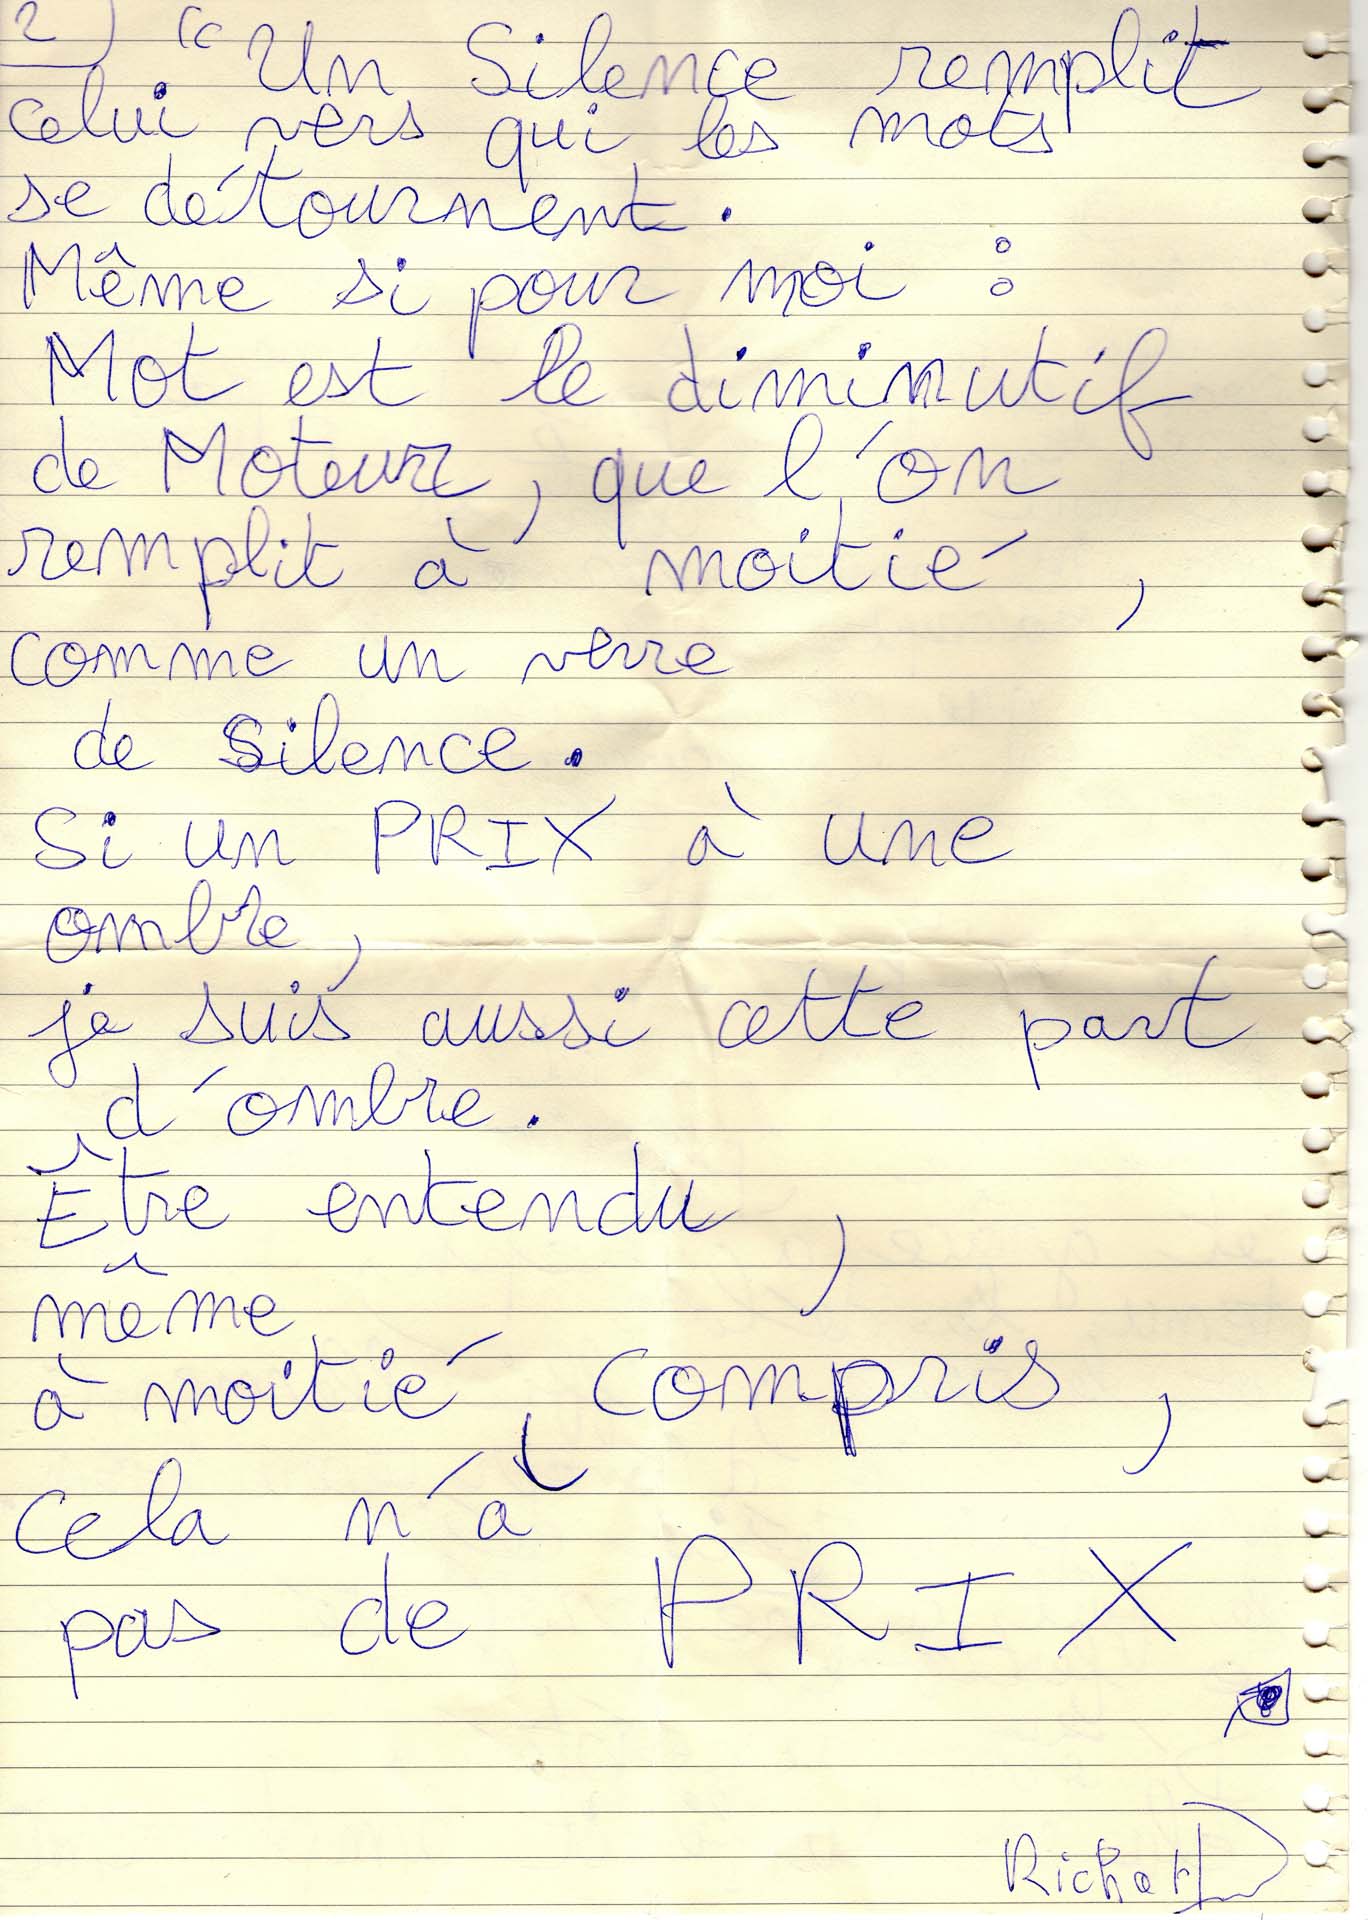 2) " Un Silence remplit
celui vers qui les mots
se détournent.
Même si pour moi :
Mot est le diminutif
de Moteur, que l'on
remplit à moitié,
comme un verre
de Silence.
Si un PRIX à une
ombre,
je suis aussi cette part
d'ombre.
Être entendu,
même
à moitié, compris,
cela n'a
pas de PRIX
Richard